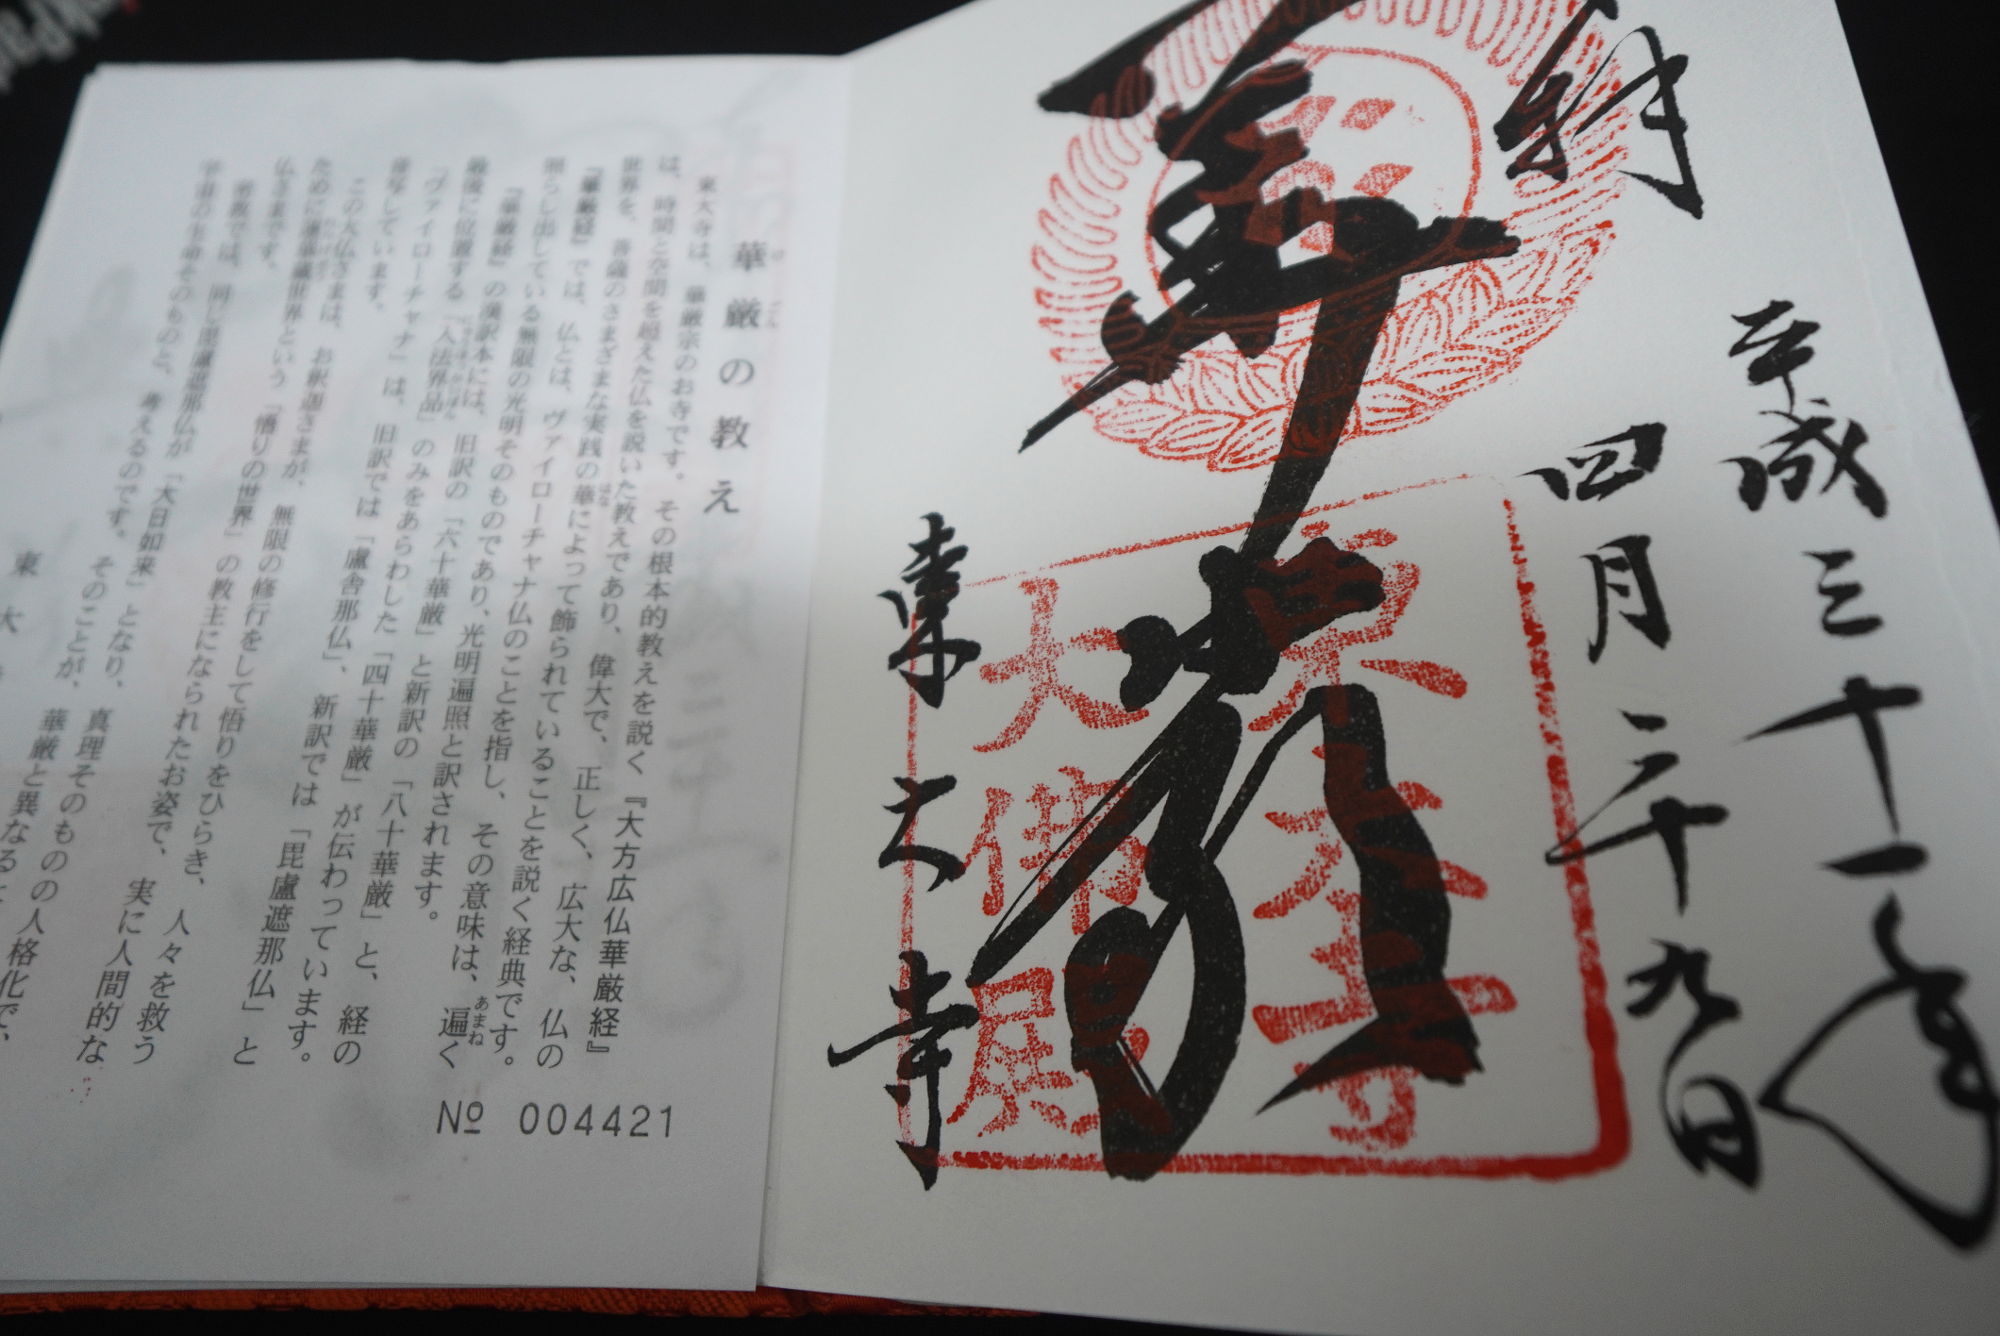 拝
平成三十一年
四月二十九日
華厳
東大寺
東大寺
大佛殿
華厳の教え
けごん
東大寺は、華厳宗のお寺です。その根本的教えを説く『大方広仏華厳経』
は、時間と空間を超えた仏を説いた教えであり、偉大で、正しく、広大な、仏の
世界を、菩薩のさまざまな実践の華によって飾られていることを説く経典です。
はな
『華厳経』では、仏とは、ヴァイローチャナ仏のことを指し、その意味は、遍く
あまね
照らし出している無限の光明そのものであり、光明遍照と訳されます。
『華厳経』の漢訳本には、旧訳の「六十華厳」と新訳の「八十華厳」と、経の
最後に位置する「入法界品」のみをあらわした「四十華厳」が伝わっています。
「ヴァイローチャナ」は、旧訳では「盧舎那仏」、新訳では「毘盧遮那仏」と
音写しています。
この大仏さまは、お釈迦さまが、無限の修行をして悟りをひらき、人々を救う
ために蓮華蔵世界という「悟りの世界」の教主になられたお姿で、実に人間的な
仏さまです。
密教では、同じ毘盧遮那仏が「大日如来」となり、真理そのものの人格化で、
宇宙の生命そのものと、考えるのです。そのことが、華厳と異なる
東大
№ 004421